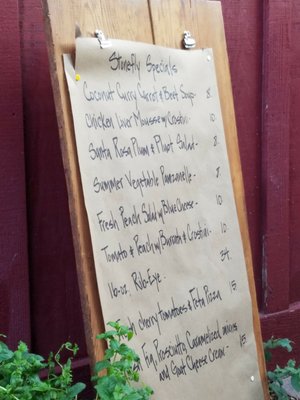 Stonefly Specials
Coconut Curry Carrot & Beet Soup - 8
Chicken Liver Mousse w/ Crostini 10
Santa Rosa Plum & Pluot Salad - 8
Summer Vegetable Panzanelle - 8
Fresh Peach Salad w/ Blue Cheese - 10
Tomato & Peach w/ Burrata & Crostini - 10
16-oz. Rib-Eye - 34
Cherry Tomatoes & Feta Pizza 15
Fig, Prosciutto, Caramelized onions
and Goat Cheese Cream - 15